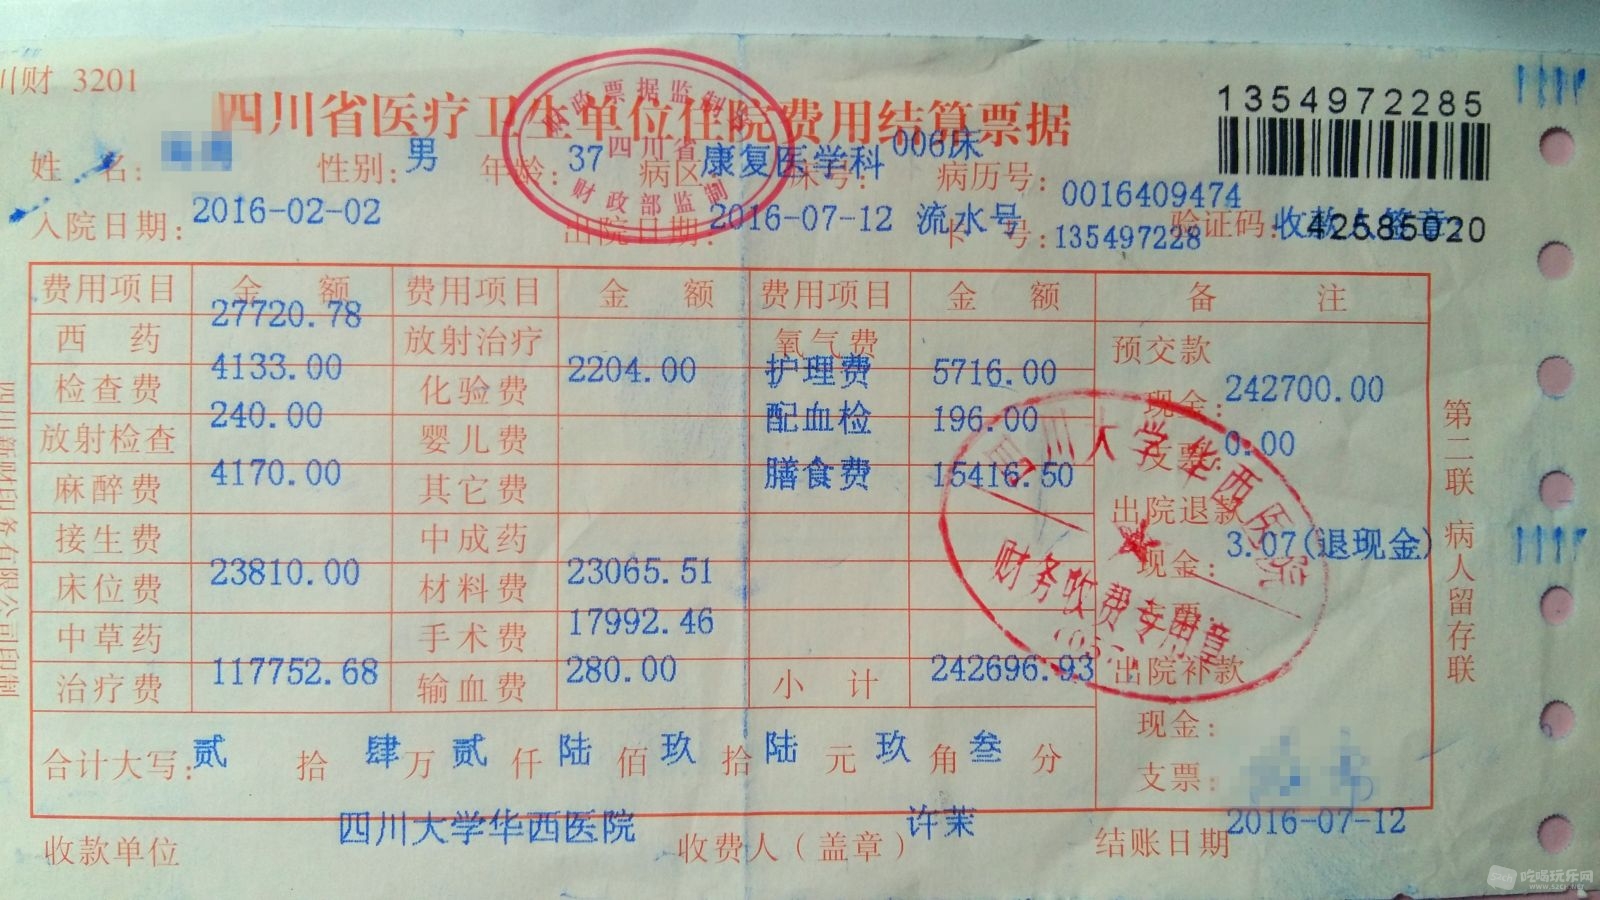 川财 3201
四川省医疗卫生单位住院费用结算票据
1354972285
财政票据监制章
四川省
财政部监制
姓 名: 性别: 男 年龄: 37 病区 康复医学科 床号: 006床 病历号: 0016409474
入院日期: 2016-02-02 出院日期: 2016-07-12 流水号 卡 号: 135497228 验证码: 收款人签章: 42585020
费用项目 金 额 费用项目 金 额 费用项目 金 额 备 注
西 药 27720.78 放射治疗 氧气费 预交款
检查费 4133.00 化验费 2204.00 护理费 5716.00 现金: 242700.00
放射检查 240.00 婴儿费 配血检 196.00 支票: 0.00
麻醉费 4170.00 其它费 膳食费 15416.50 出院退款
接生费 中成药 现金: 3.07(退现金)
床位费 23810.00 材料费 23065.51 支票:
中草药 手术费 17992.46 出院补款
治疗费 117752.68 输血费 280.00 小 计 242696.93
现金:
支票:
合计大写: 贰 拾 肆 万 贰 仟 陆 佰 玖 拾 陆 元 玖 角 叁 分
收款单位 四川大学华西医院 收费人(盖章) 许茉 结账日期 2016-07-12
四川大学华西医院
财务收费专用章
第二联 病人留存联
吃喝玩乐网